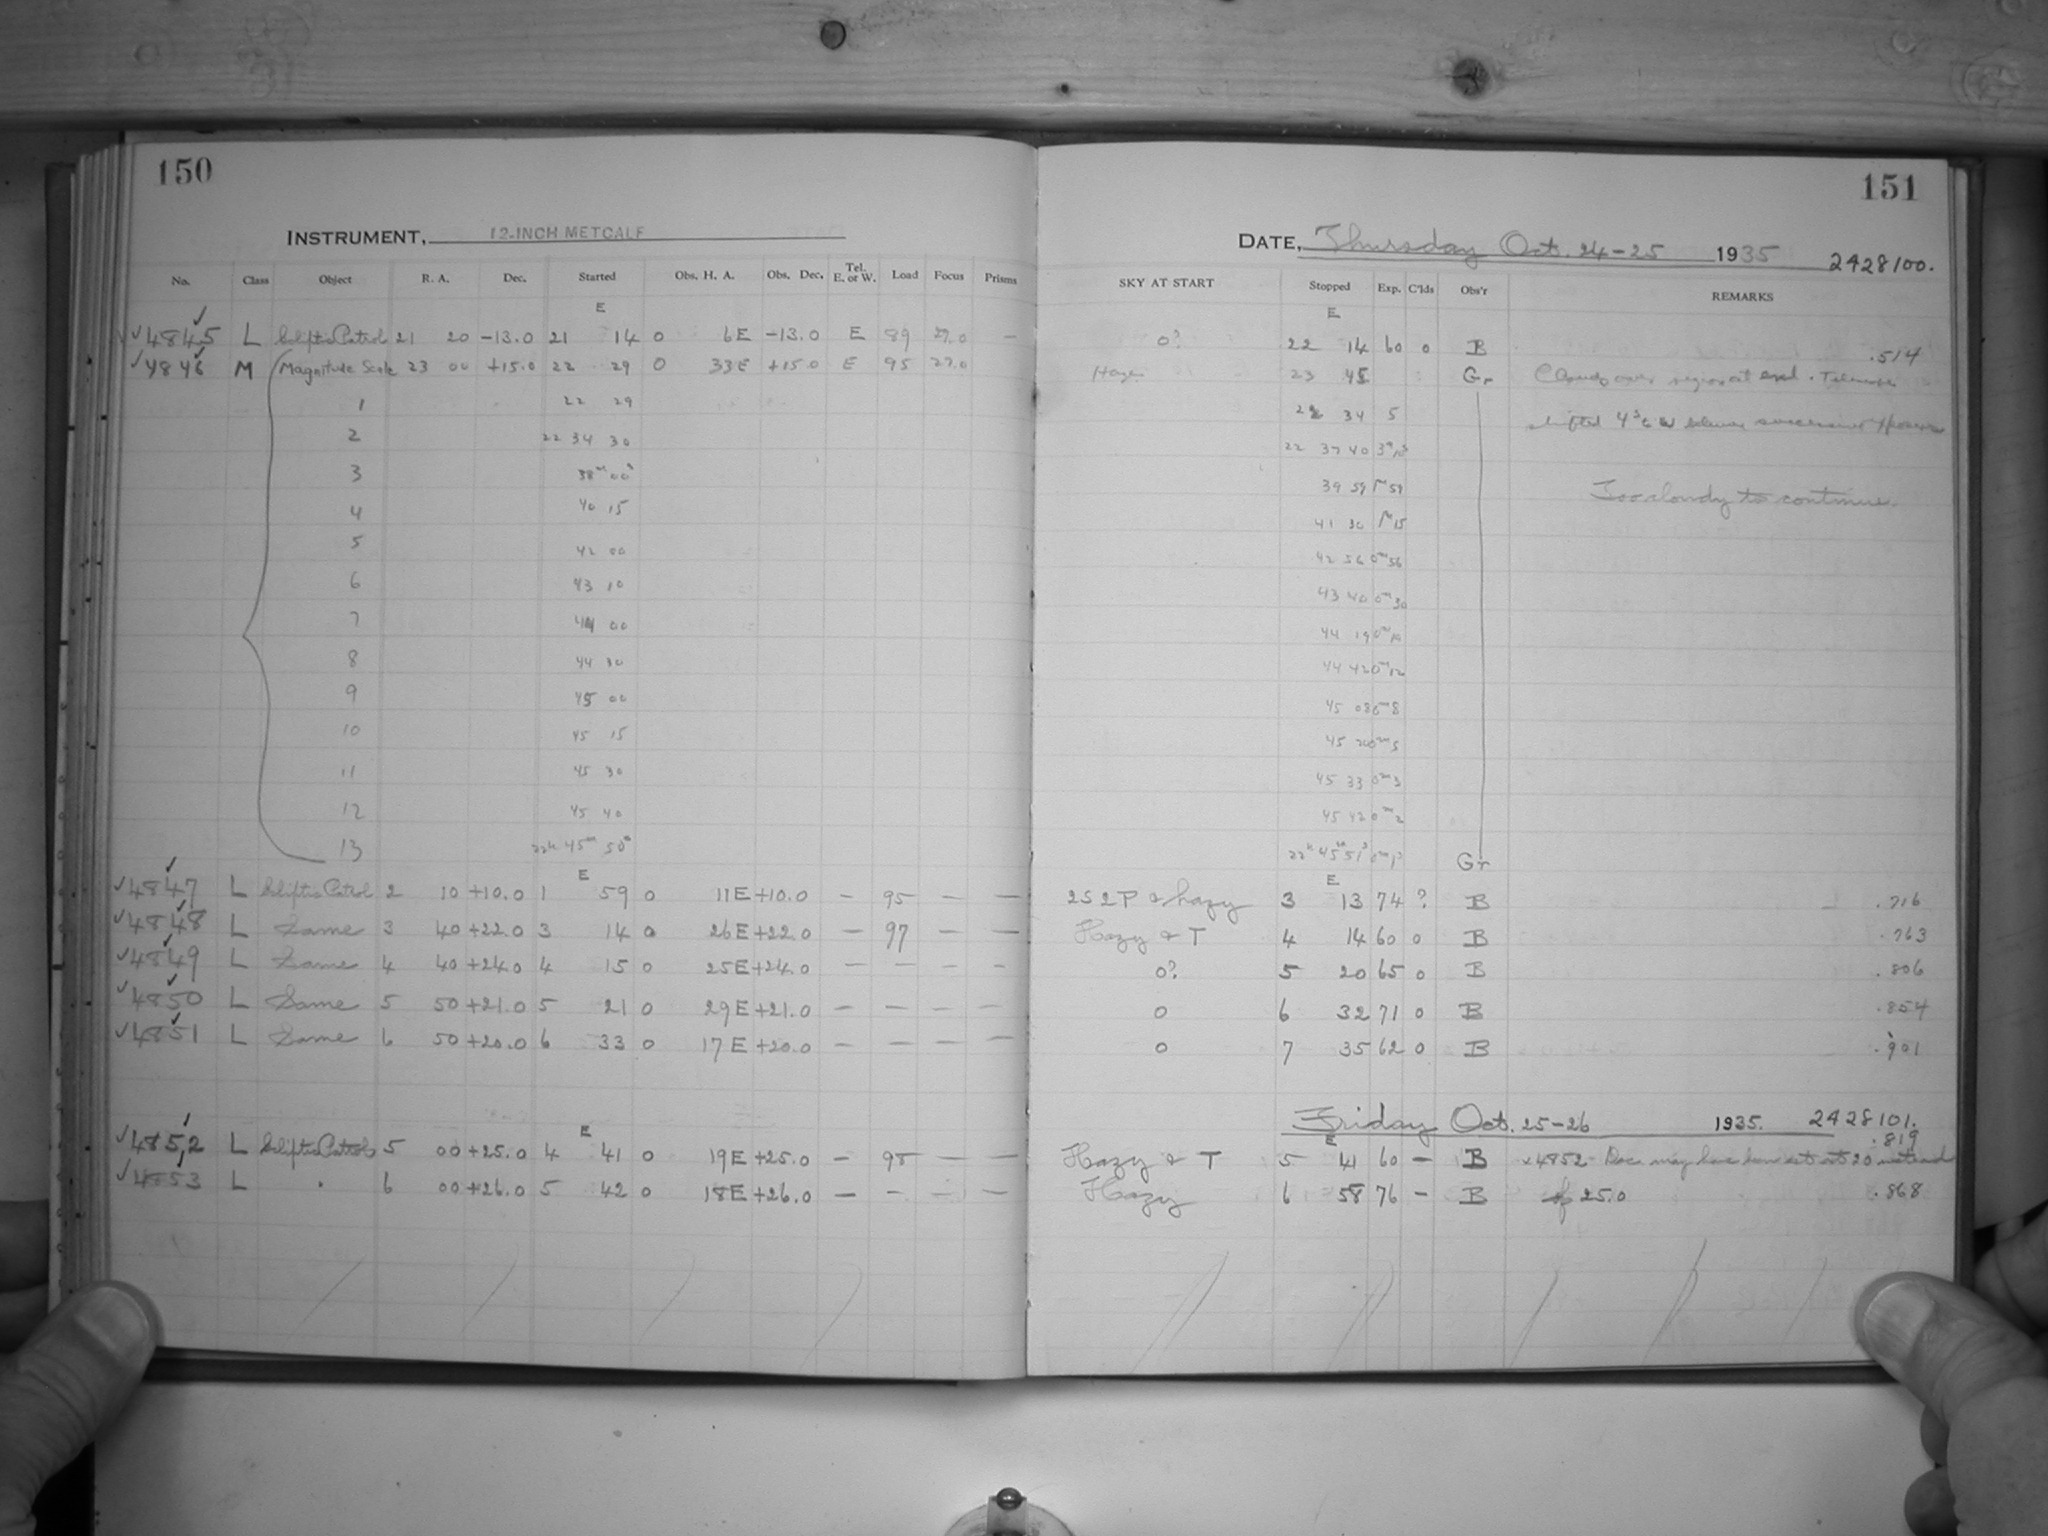 150
INSTRUMENT, 12-INCH METCALF
No. Class Object R. A. Dec. Started Obs. H. A. Obs. Dec. Tel. E. or W. Load Focus Prisms
E
4845 L Ecliptic Patrol 21 20 -13.0 21 14 0 6E -13.0 E 89 27.0 —
4846 M Magnitude Scale 23 00 +15.0 22 29 0 33E +15.0 E 95 27.0
1 22 29
2 22 34 30
3 38m 00s
4 40 15
5 42 00
6 43 10
7 44 00
8 44 30
9 45 00
10 45 15
11 45 30
12 45 40
13 22h 45m 50s
E
4847 L Ecliptic Patrol 2 10 +10.0 1 59 0 11E +10.0 — 95 — —
4848 L Same 3 40 +22.0 3 14 0 26E +22.0 — 97 — —
4849 L Same 4 40 +24.0 4 15 0 25E +24.0 — — — —
4850 L Same 5 50 +21.0 5 21 0 29E +21.0 — — — —
4851 L Same 6 50 +20.0 6 33 0 17E +20.0 — — — —
E
4852 L Ecliptic Patrol 5 00 +25.0 4 41 0 19E +25.0 — 95 — —
4853 L " 6 00 +26.0 5 42 0 18E +26.0 — — — —
151
DATE, Thursday Oct. 24-25 1935 2428100.
SKY AT START Stopped Exp. C'lds Obs'r REMARKS
E
0? 22 14 60 0 B .514
Haze 23 45 Gr Clouds over region at end. Telescope
22 34 5 shifted 4s between successive exposures
22 37 40 3m10s
39 59 1m59
41 30 1m15 Too cloudy to continue
42 56 0m56
43 40 0m30
44 19 0m19
44 42 0m12
45 08 0m8
45 20 0m5
45 33 0m3
45 42 0m2
22h 45m 51s 0m1s Gr
E
2S 2P & hazy 3 13 74 ? B .716
Hazy & T 4 14 60 0 B .763
0? 5 20 65 0 B .806
0 6 32 71 0 B .854
0 7 35 62 0 B .901
Friday Oct. 25-26 1935. 2428101.
E .819
Hazy & T 5 41 60 — B x4852 - Dec. may have been set at 20 instead
Hazy 6 58 76 — B of 25.0 .868